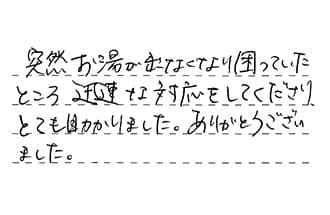 突然お湯が出なくなり困っていた
ところ迅速な対応をしてくださり、
とても助かりました。ありがとうござい
ました。